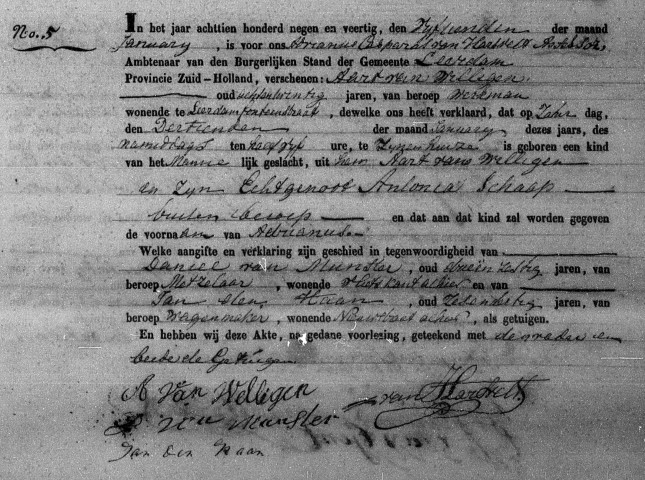 No. 5
In het jaar achttien honderd negen en veertig, den Vyftienden der maand
January, is voor ons Adrianus Casparus van Hasselt
Ambtenaar van den Burgerlijken Stand der Gemeente Leerdam
Provincie Zuid-Holland, verschenen: Aart van Welligen
oud achtentwintig jaren, van beroep
wonende te Leerdam fonteinstraat, dewelke ons heeft verklaard, dat op Zatur dag,
den Dertienden der maand January dezes jaars, des
namiddags ten half vyf ure, te Zynen huize is geboren een kind
van het Manne lijk geslacht, uit hem Aart van Welligen
en Zyn Echtgenoot Antonia Schaap
buiten beroep en dat aan dat kind zal worden gegeven
de voornaam van Adrianus
Welke aangifte en verklaring zijn geschied in tegenwoordigheid van
Daniel van Munster, oud drieen zestig jaren, van
beroep Metzelaar, wonende en van
Jan den Haan, oud jaren, van
beroep Wagenmaker, wonende, als getuigen.
En hebben wij deze Akte, na gedane voorlezing, geteekend met den vader en
beide de Getuigen
A Van Welligen
D van Munster
van Hasselt
Jan den Haan